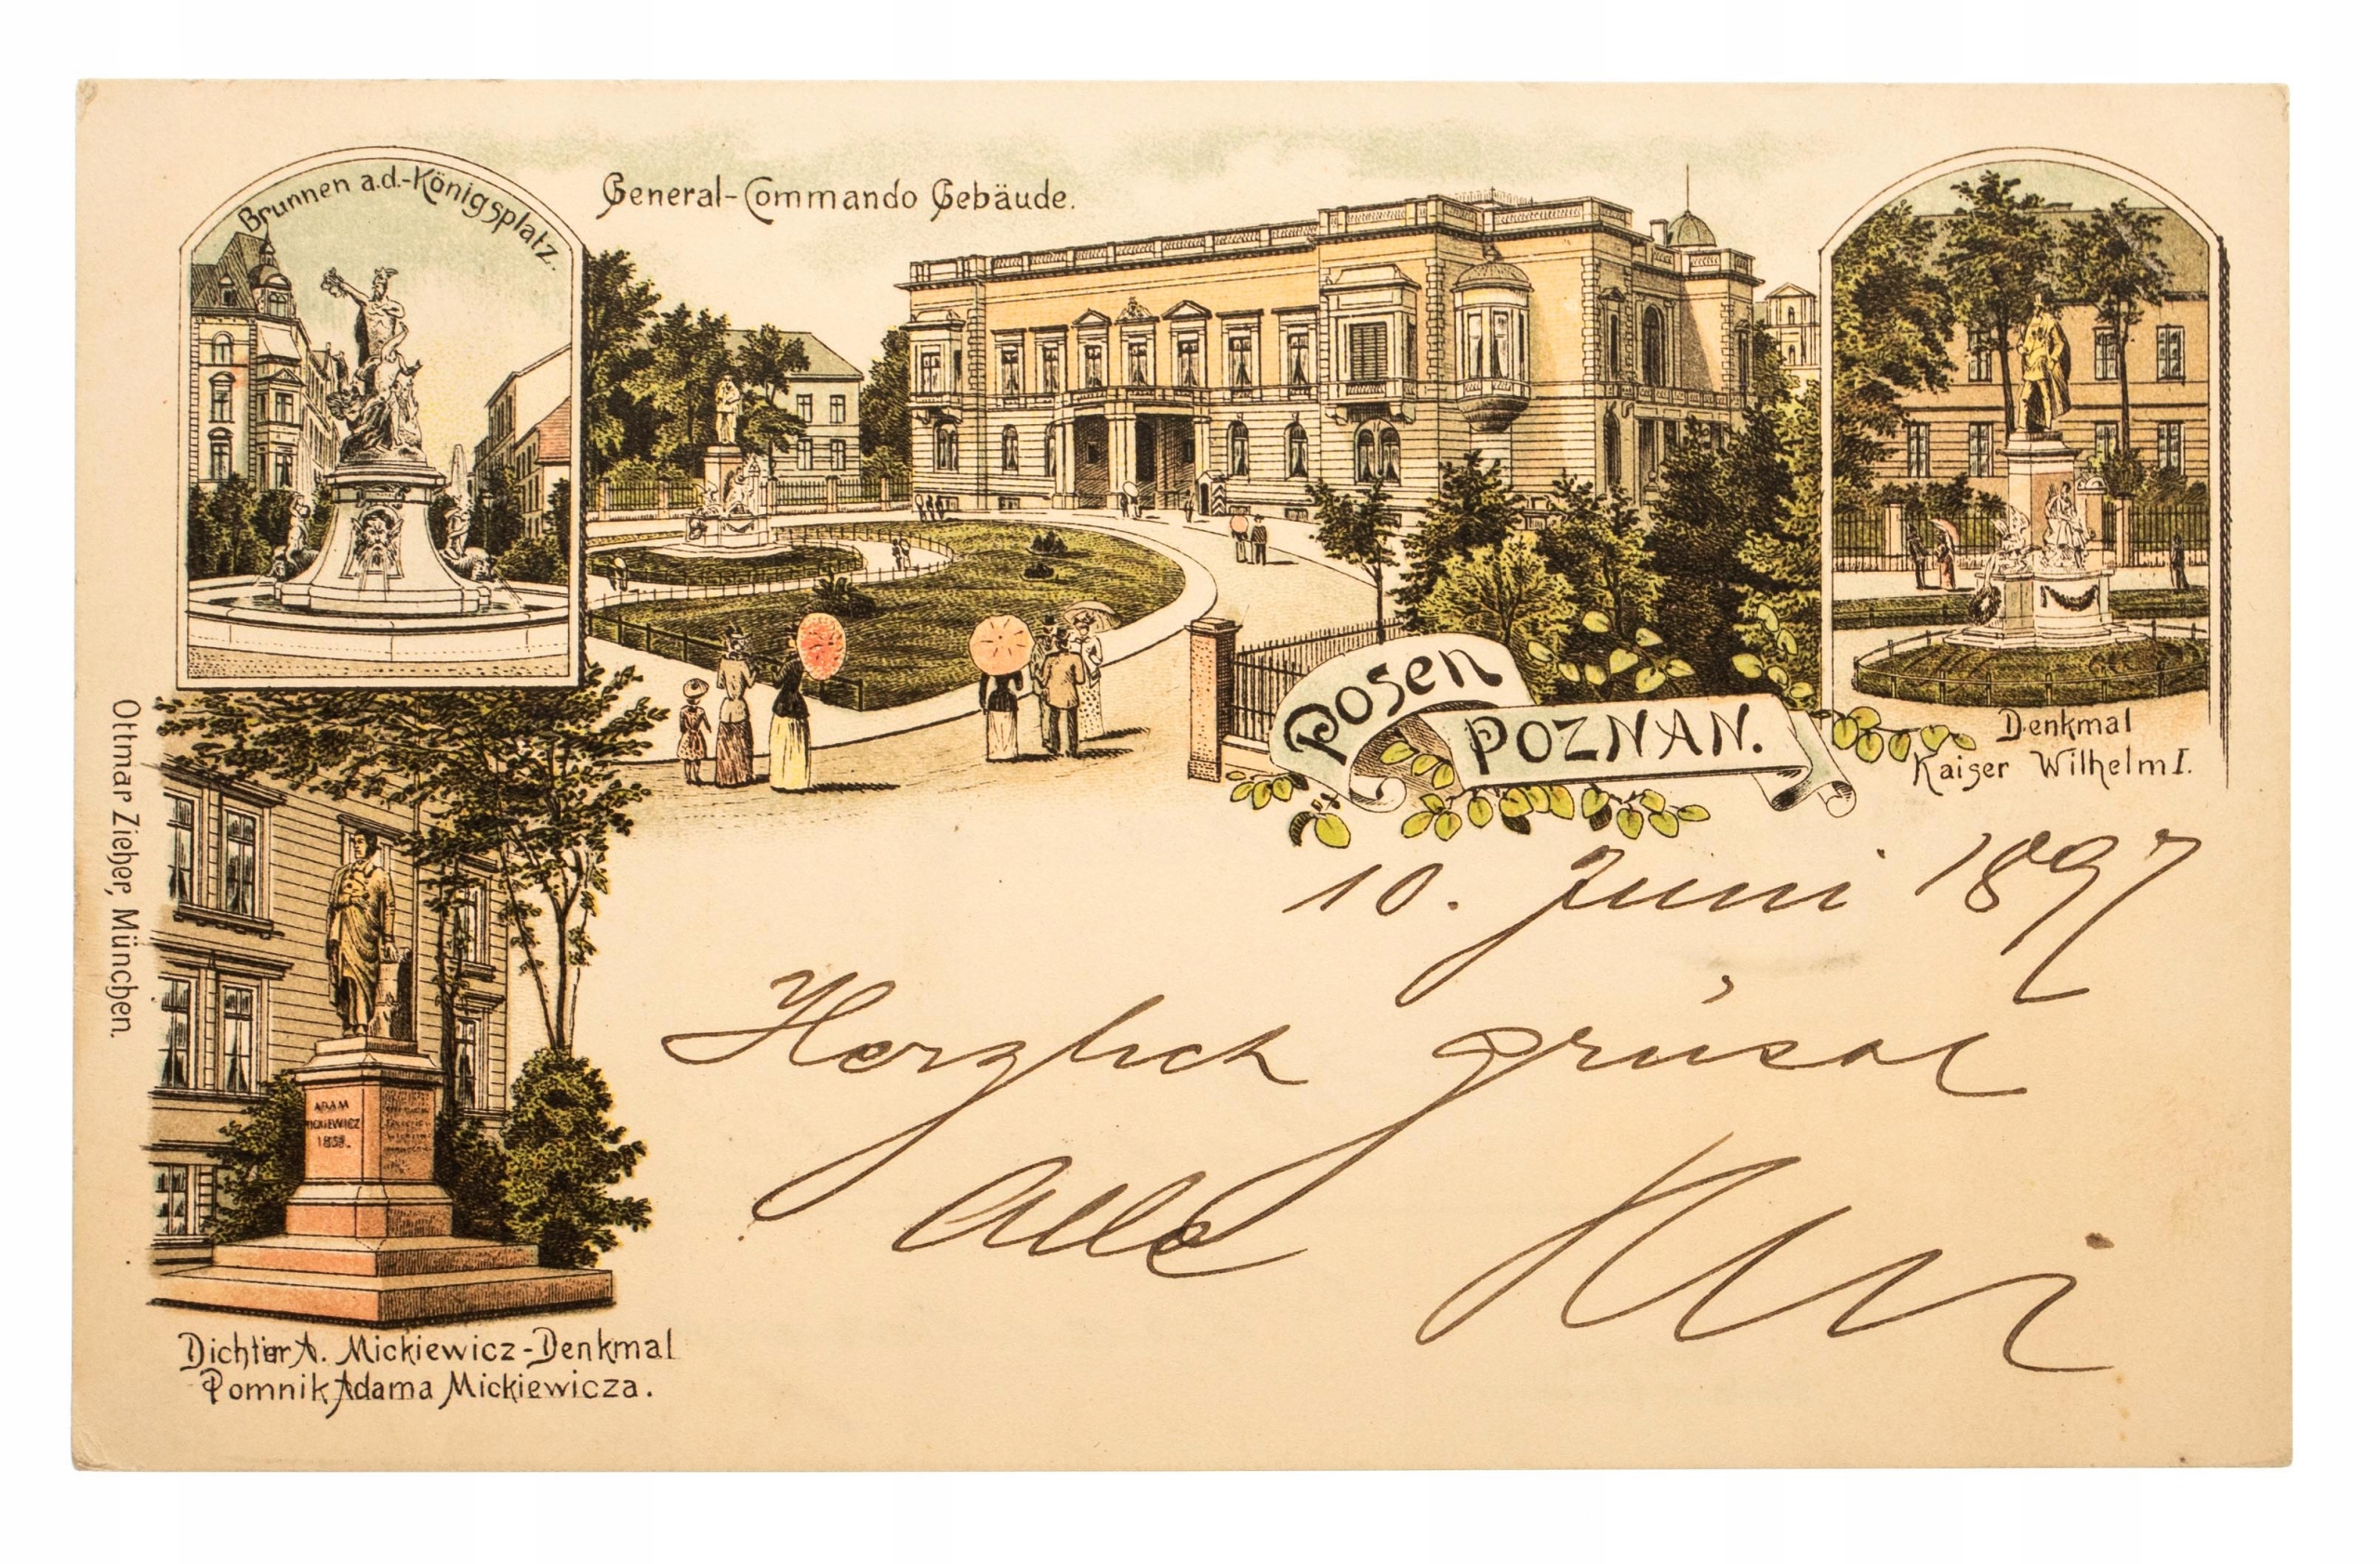 Brunnen a.d.-Königsplatz.
General-Commando Gebäude.
Posen
POZNAN.
Denkmal
Kaiser Wilhelm I.
Ottmar Zieher, München.
ADAM
MICKIEWICZ
1859.
Dichter A. Mickiewicz-Denkmal
Pomnik Adama Mickiewicza.
10. Juni 1897
Herzlich grüsst
Alle